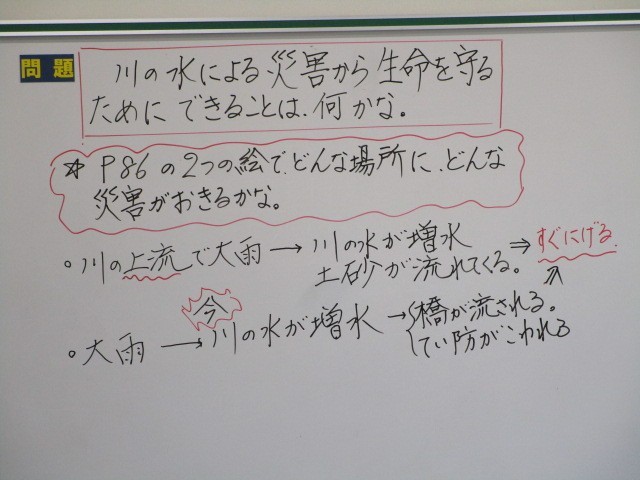 問題
川の水による災害から生命を守る
ためにできることは、何かな。
☆ P86の2つの絵で、どんな場所に、どんな
災害がおきるかな。
。川の上流で大雨→川の水が増水
土砂が流れてくる。⇒すぐにげる。
今
。大雨→川の水が増水→橋が流される。
てい防がこわれる